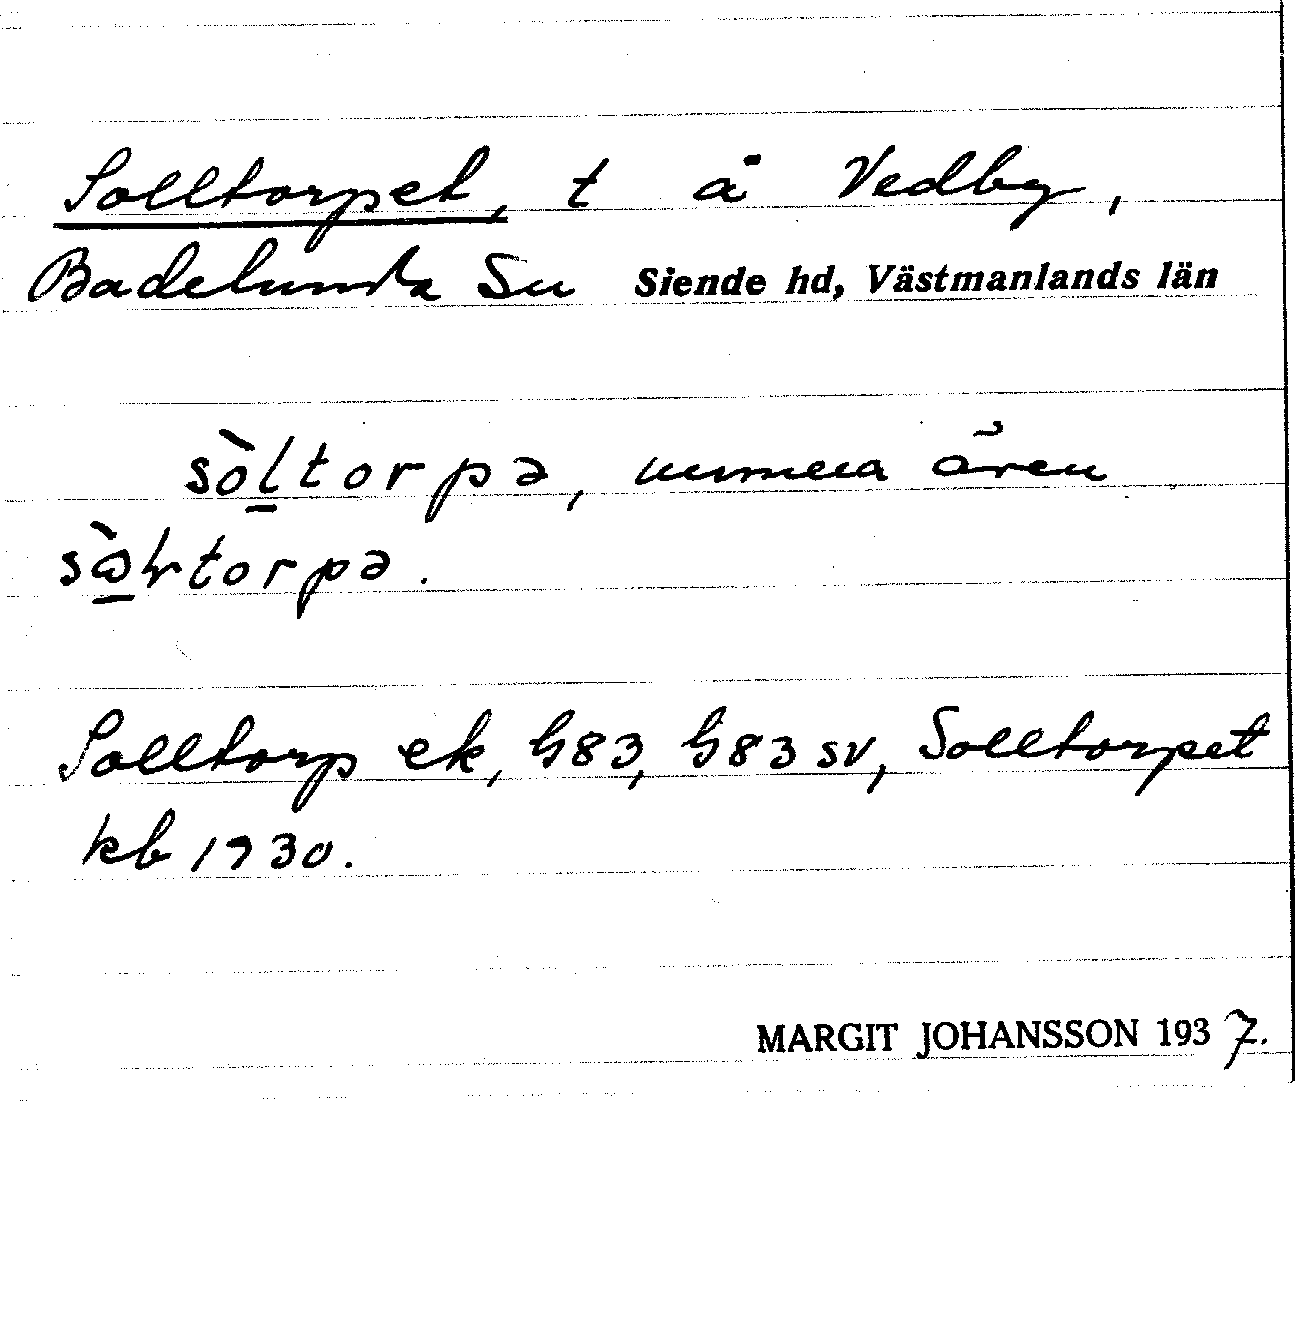 Solltorpet, t å Vedby,
Badelunda Sn Siende hd, Västmanlands län
sòltorpə, numera även
sòɷltorpə.
Solltorp ek, h83, h83 sv, Solltorpet
kb 1930.
MARGIT JOHANSSON 1937.